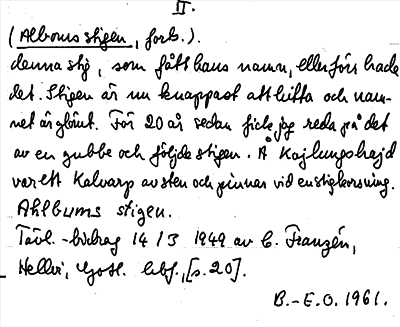 II.
(Alboms stigen, forts.).
denna stig, som fått hans namn, eller förr hade
det. Stigen är nu knappast att hitta och nam-
net är glömt. För 20 år sedan fick jag reda på det
av en gubbe och följde stigen. Å Kajlungshajd
var ett kalvarp av sten och pinnar vid en stigkorsning.
Ahlbums stigen.
Tävl.-bidrag 14/3 1949 av C. Franzén,
Hellvi, Gotl. [s. 20].
B.-E.O. 1961.